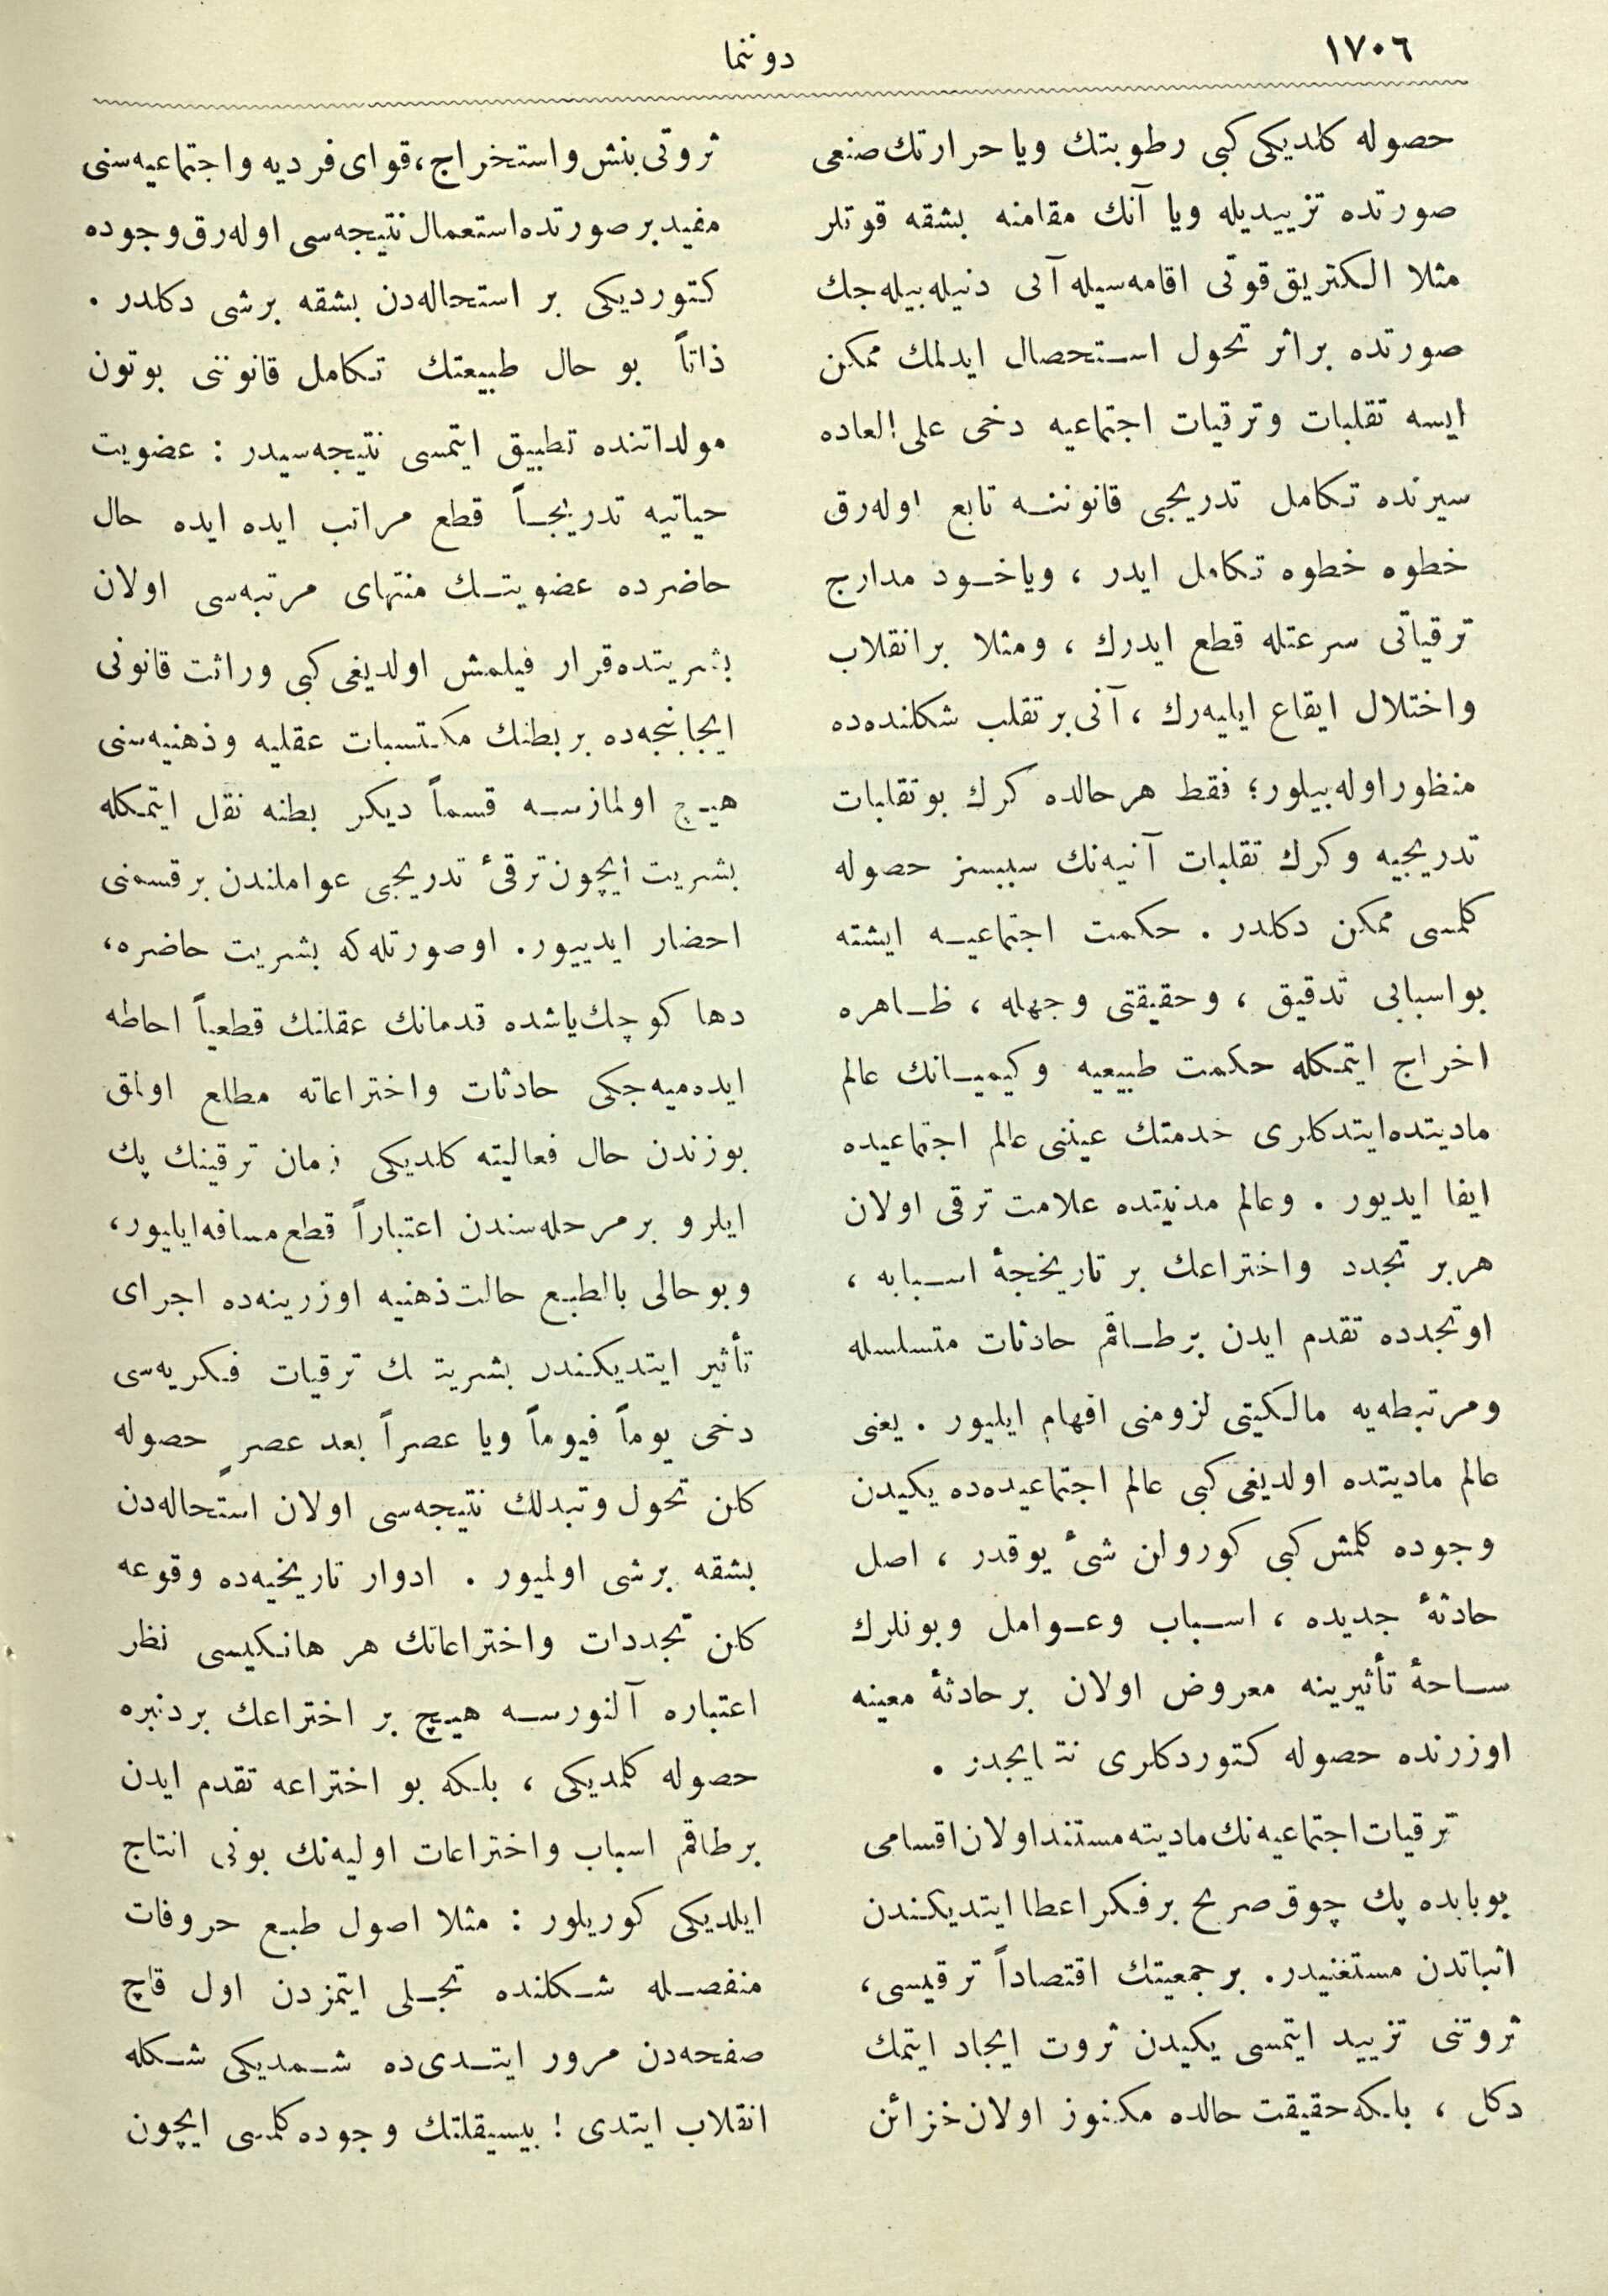 ١٧٠٦
دوننما
حصوله كلديكى كبى رطوبتك ويا حرارتك صنعى
صورتده تزييديله ويا آنك مقامنه بشقه قوتلر
مثلا الكتريق قوتى اقامه‌سيله آنى دنيله‌بيله‌جك
صورتده براثر تحول استحصال ايدلمك ممكن
ايسه تقلبات وترقيات اجتماعيه دخى على العاده
سيرنده تكامل تدريجى قانوننه تابع اوله‌رق
خطوه خطوه تكامل ايدر ، وياخود مدارج
ترقياتى سرعتله قطع ايدرك ، ومثلا برانقلاب
واختلال ايقاع ايليه‌رك ، آنى بر تقلب شكلنده‌ده
منظور اوله‌بيلور؛ فقط هر حالده كرك بو تقلبات
تدريجيه وكرك تقلبات آنيه‌نك سببسز حصوله
كلمسى ممكن دكلدر . حكمت اجتماعيه ايشته
بو اسبابى تدقيق ، وحقيقتى وجهله ، ظاهره
اخراج ايتمكله حكمت طبيعيه وكيميانك عالم
ماديتده ايتدكلرى خدمتك عيننى عالم اجتماعيده
ايفا ايديور . وعالم مدنيتده علامت ترقى اولان
هربر تجدد واختراعك بر تاريخچۀ اسبابه ،
او تجدده تقدم ايدن برطاقم حادثات متسلسله
ومرتبطه‌يه مالكيتى لزومنى افهام ايليور . يعنى
عالم ماديتده اولديغى كبى عالم اجتماعيده‌ده يكيدن
وجوده كلمش كبى كورولن شىٔ يوقدر ، اصل
حادثۀ جديده ، اسباب وعوامل وبونلرك
ساحۀ تأثيرينه معروض اولان بر حادثۀ معينه
اوزرنده حصوله كتوردكلرى نتايجدر .
ترقيات اجتماعيه‌نك ماديته مستند اولان اقسامى
بوبابده پك چوق صريح برفكر اعطا ايتديكندن
اثباتدن مستغنيدر. بر جمعيتك اقتصاداً ترقيسى،
ثروتنى تزييد ايتمسى يكيدن ثروت ايجاد ايتمك
دكل ، بلكه حقيقت حالده مكنوز اولان خزائن
ثروتى بنش واستخراج، قواى فرديه واجتماعيه‌سنى
مفيد بر صورتده استعمال نتيجه‌سى اوله‌رق وجوده
كتورديكى بر استحاله‌دن بشقه برشى دكلدر .
ذاتاً بو حال طبيعتك تكامل قانوننى بوتون
مولداتنده تطبيق ايتمسى نتيجه‌سيدر : عضويت
حياتيه تدريجاً قطع مراتب ايده ايده حال
حاضرده عضويتك منتهاى مرتبه‌سى اولان
بشريتده قرار قيلمش اولديغى كبى وراثت قانونى
ايجابنجه‌ده بر بطنك مكتسبات عقليه وذهنيه‌سنى
هيچ اولمازسه قسماً ديكر بطنه نقل ايتمكله
بشريت ايچون ترقىٔ تدريجى عواملندن بر قسمنى
احضار ايدييور. اوصورتله‌كه بشريت حاضره،
دها كوچك ياشده قدمانك عقلنك قطعياً احاطه
ايده‌ميه‌جكى حادثات واختراعاته مطلع اولمق
بوزندن حال فعاليته كلديكى زمان ترقينك پك
ايلرو بر مرحله‌سندن اعتباراً قطع مسافه ايليور،
وبو حالى بالطبع حالت ذهنيه اوزرينه‌ده اجراى
تأثير ايتديكندن بشريتك ترقيات فكريه‌سى
دخى يوماً فيوماً ويا عصراً بعد عصرٍ حصوله
كلن تحول وتبدلك نتيجه‌سى اولان استحاله‌دن
بشقه برشى اولميور . ادوار تاريخيه‌ده وقوعه
كلن تجددات واختراعاتك هر هانكيسى نظر
اعتباره آلنورسه هيچ بر اختراعك بردنبره
حصوله كلمديكى ، بلكه بو اختراعه تقدم ايدن
برطاقم اسباب واختراعات اوليه‌نك بونى انتاج
ايلديكى كوريلور : مثلا اصول طبع حروفات
منفصله شكلنده تجلى ايتمزدن اول قاچ
صفحه‌دن مرور ايتدى‌ده شمديكى شكله
انقلاب ايتدى ! بيسيقلتك وجوده كلمسى ايچون